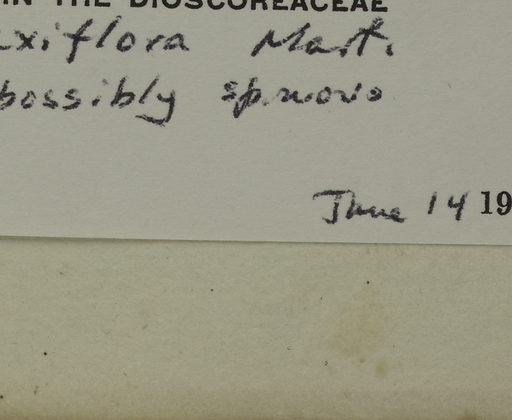 IN THE DIOSCOREACEAE
xiflora Mart.
possibly sp. novo
June 14 19